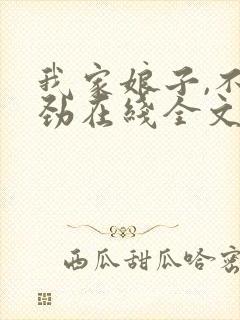 我家娘子,不
劲在线全文
西瓜甜瓜哈密